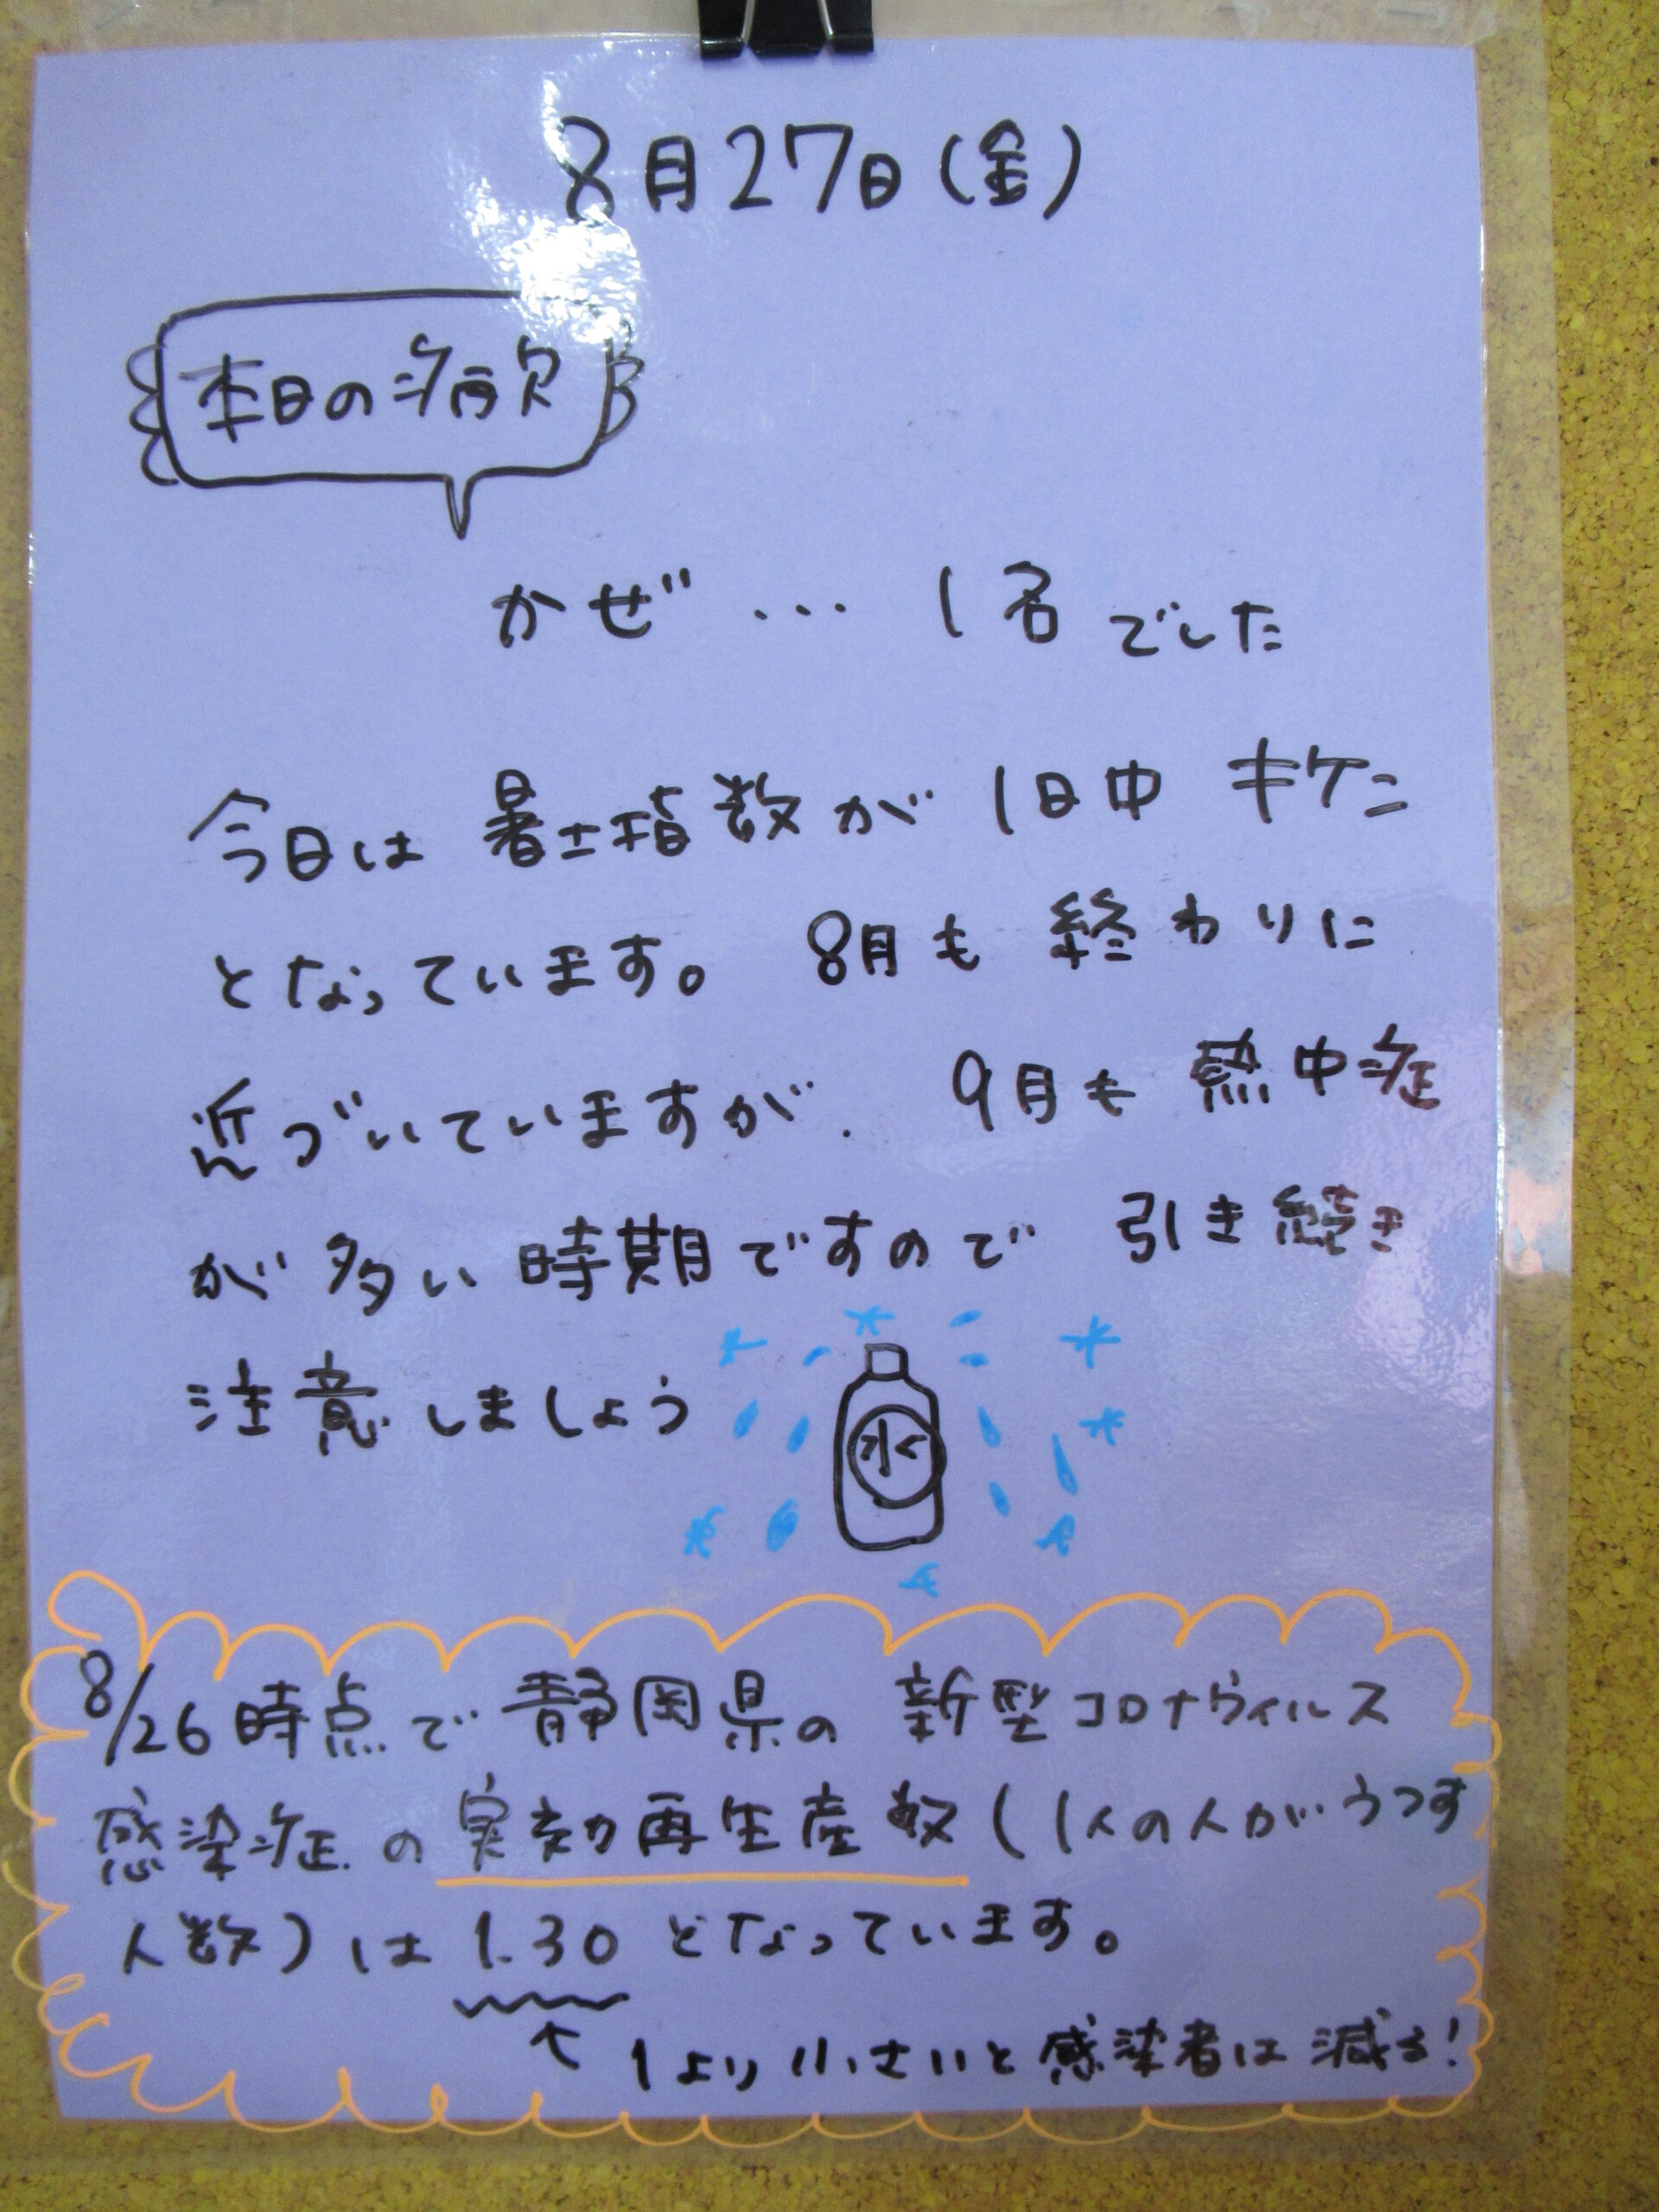 8月27日(金)
本日の病欠
かぜ… 1名でした
今日は 暑さ指数が 1日中 キケン
となっています。 8月も 終わりに
近づいていますが、 9月も 熱中症
が多い時期ですので 引き続き
注意しましょう
水
8/26時点で静岡県の 新型コロナウィルス
感染症の実効再生産数(1人の人がうつす
人数)は 1.30 となっています。
↑ 1より小さいと感染者は減る!